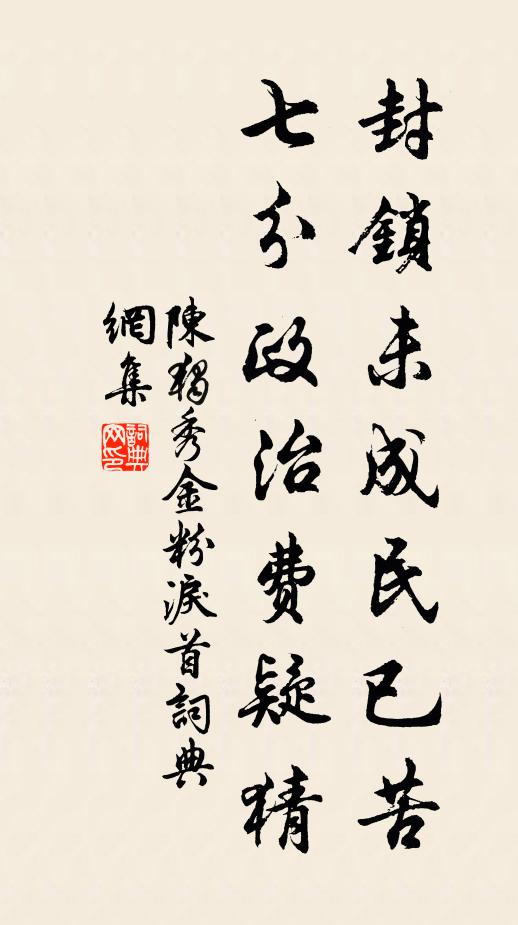 封鎖未成民已苦
七分政治費疑猜
陳獨秀金粉淚首詞典
網集
詞典
網印